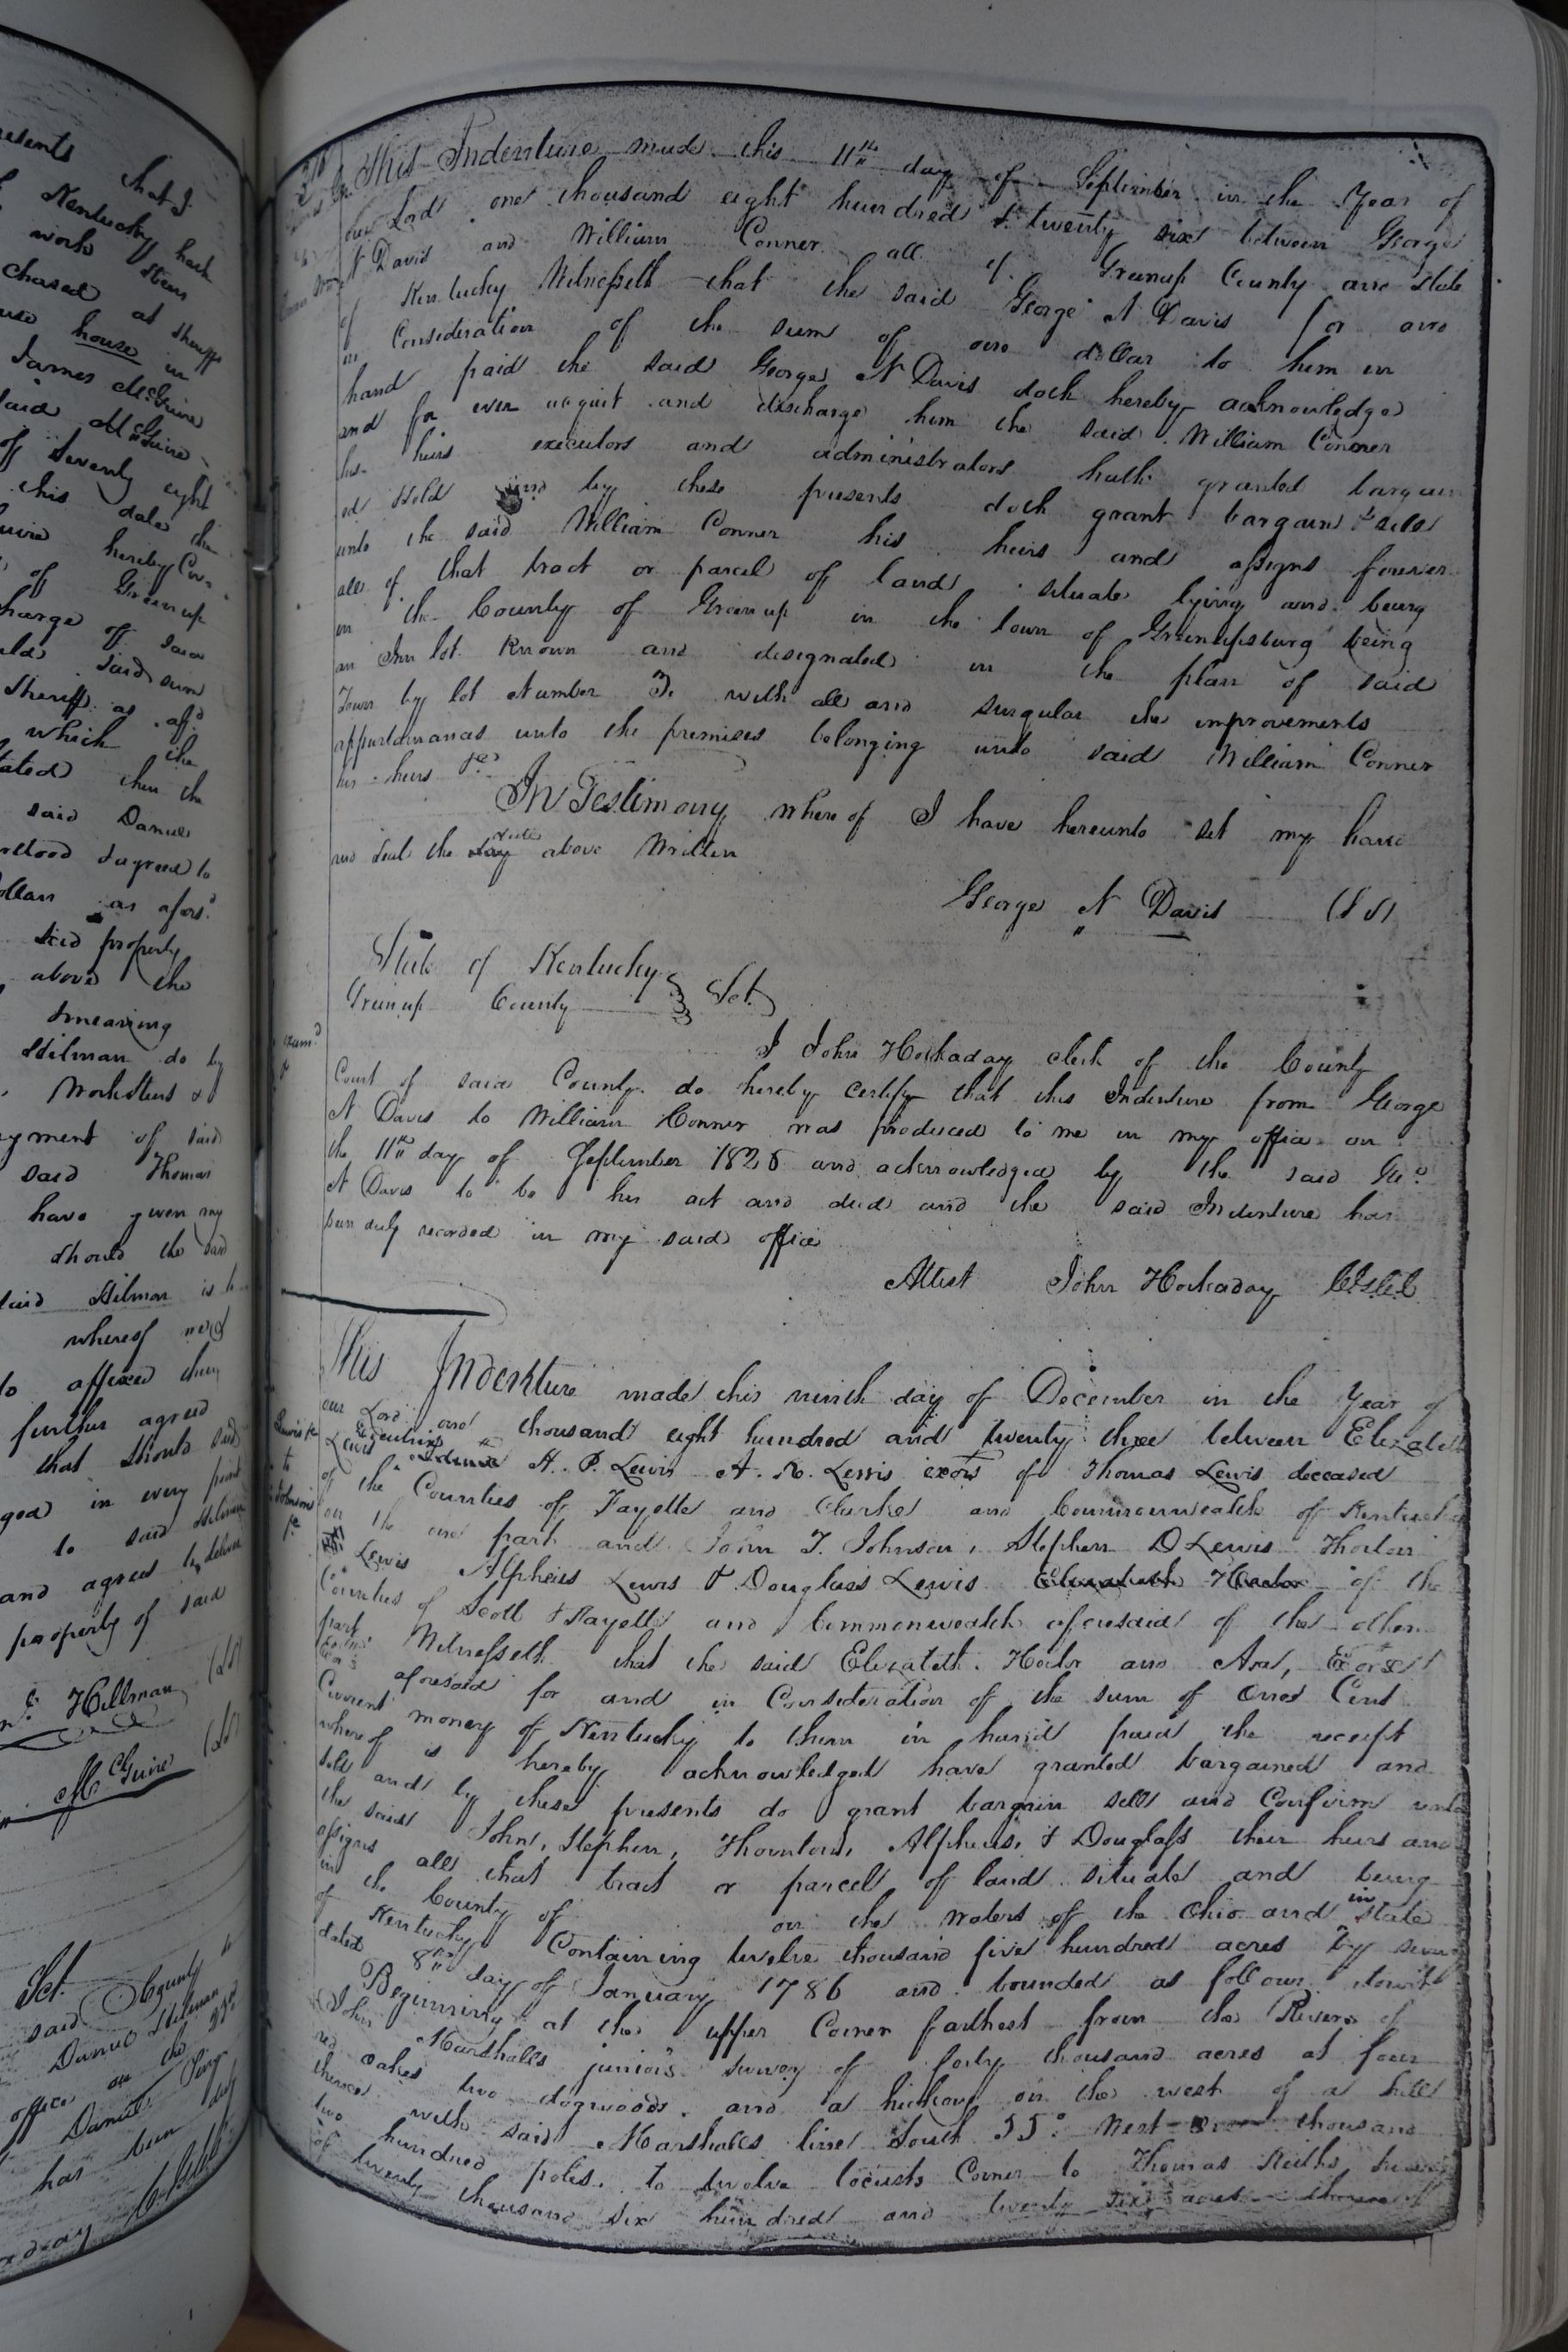 resents that I
Kentucky hath
work steer
chased at sheriffs
house in
James McGuire
said McGuire
of Seventy eight
this date the
hereby Cov=
of Greenup
charge of said
said sum
Sheriff as afd
which the
stated then the
said Daniel
stood & agreed to
ollars as afors.d
said property
above the
& meaning
Hilman do by
Workstens &
yment of said
said Thomas
have given my
should the said
said Hilman is
whereof
to affixed they
further agreed
that should said
ged in every
to said Hilman
and agrees to deliver
property of said
(LS)
Hillman
(LS)
McGuire
Sct.
said County
Daniel Hilman
office on the
Daniel
has been
This Indenture made this 11th day of September in the Year of
our Lord one thousand eight hundred & twenty six between George
N Davis and William Conner all of Greenup County and State
of Kentucky Witnesseth that the said George N Davis for and
in Consideration of the sum of one dollar to him in
hand paid the said George N Davis doth hereby acknowledge
and for ever acquit and discharge him the said William Conner
his heirs executors and administrators hath granted bargain
ed Sold and by these presents doth grant bargain & sell
unto the said William Conner his heirs and assigns forever
all of that tract or parcel of land situate lying and being
in the County of Greenup in the town of Greenupsburg being
an Inn lot Known and designated in the plan of said
Town by lot Number with all and singular the improvements
appurtanances unto the premises belonging unto said William Conner
his heirs &c
In Testimony where of I have hereunto set my hand
and Seal the day date above Written
George N Davis (LS)
State of Kentucky
Greenup County Sct.
Exam.d
I John Hockaday clerk of the County
Court of said County do hereby certify that this Indenture from George
N Davis to William Conner was produced to me in my office on
the 11th day of September 1826 and acknowledged by the said Geo
N Davis to be his act and deed and the said Indenture has
been duly recorded in my said office
Attest John Hockaday
This Indenture made this ninth day of December in the Year of
our Lord one thousand eight hundred and twenty three between Elizabeth
Lewis Executrix H. P. Lewis A. K. Lewis exors of Thomas Lewis deceased
of the Counties of Fayette and Clarke and Commonwealth of Kentucky
Lewis &c
to
Johnson
&c
on the one part and John T. Johnson, Stephen D Lewis Thorton
Lewis Alpheus Lewis & Douglass Lewis Elizabeth Hector of the
Counties of Scott & Fayette and Commonwealth aforesaid of the other
part Witnesseth that the said Elizabeth Hector and Asa,
aforesaid for and in Consideration of the sum of One Cent
Current money of Kentucky to them in hand paid the receipt
where of is hereby acknowledged have granted bargained and
sold and by these presents do grant bargain sell and Confirm unto
the said John, Stephen, Thornton, Alpheus, & Douglass their heirs and
assigns all that tract or parcel of land situate and being
in the County of on the waters of the Ohio and in State
of Kentucky Containing twelve thousand five hundred acres by survey
dated 8th day of January 1786 and bounded as follows towit
Beginning at the upper Corner farthest from the River of
John Marshalls junior's survey of forty thousand acres at four
red oakes two dogwoods and a hickory on the west of a hill
thence with said Marshalls line South 55° West thousand
two hundred poles to twelve locusts Corner to Thomas Keiths survey
of twenty thousand six hundred and twenty six acres thence